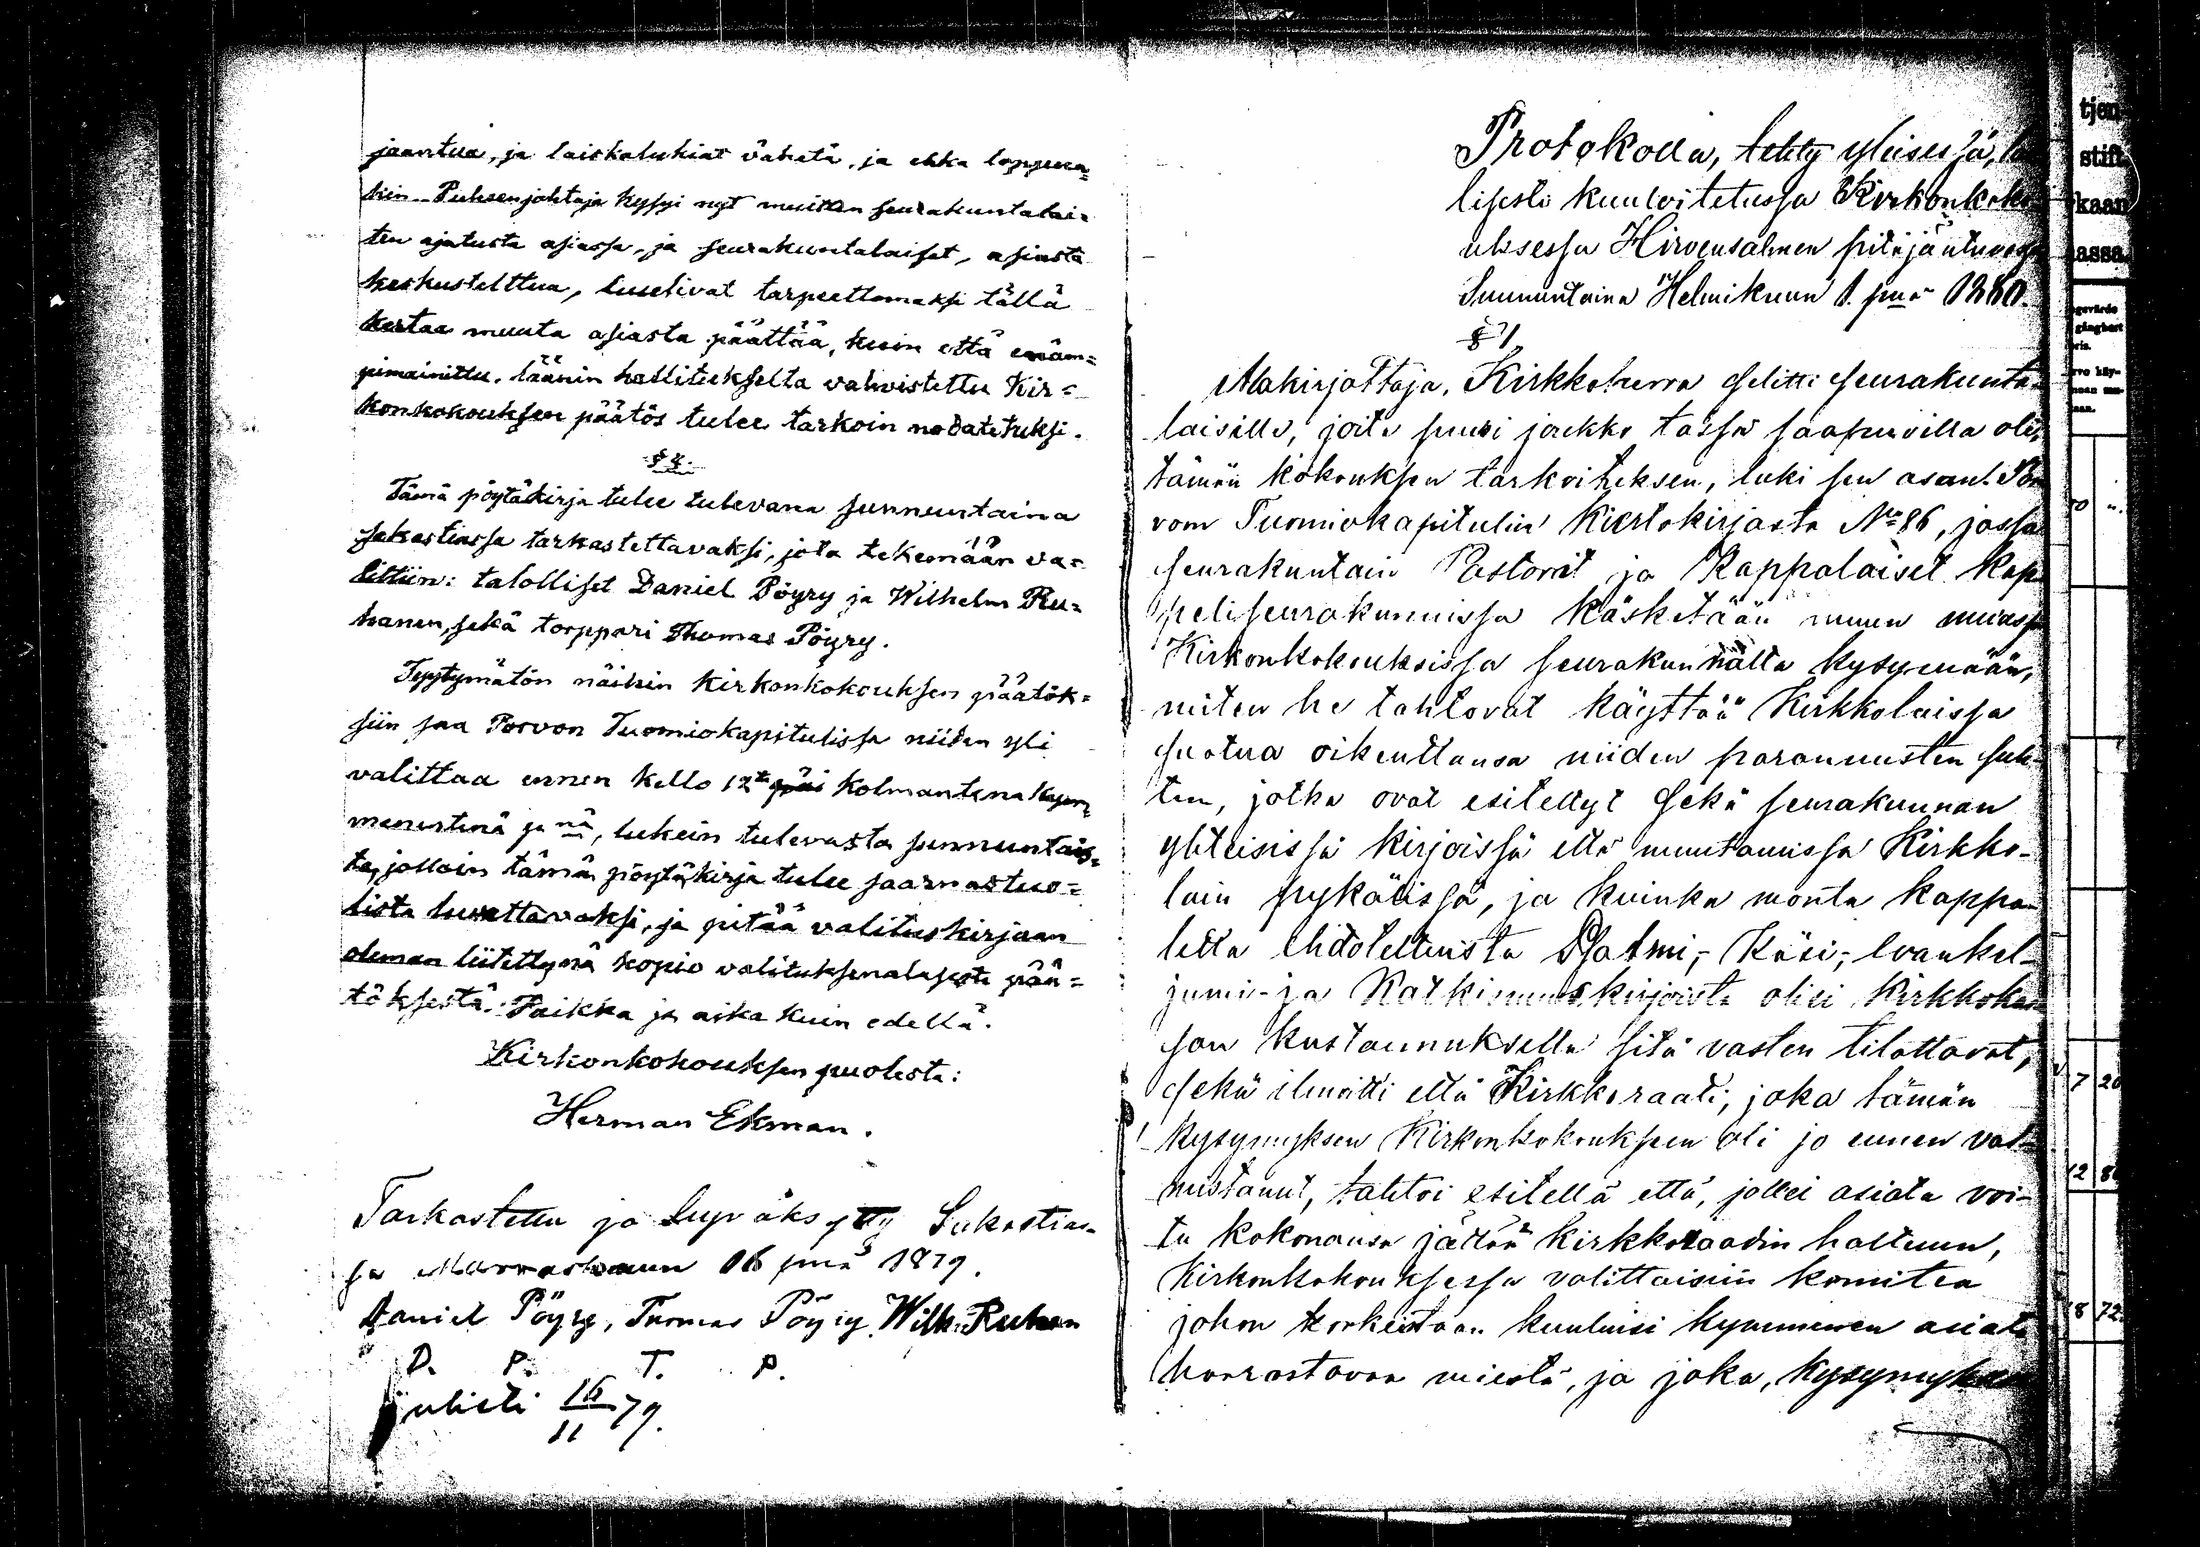 jaantua, ja laiskalukiat väheta, ja ehka loppua=
kin. Puheenjohtaja kysyi nyt muitten seurakuntalai=
ten ajatusta asiassa, ja seurakuntalaiset, asiasta
keskusteltua, luulivat tarpeettomaksi tällä
kertaa muuta asiasta päättää, kuin että enäm=
pimainittu, läänin hallitukselta vahvistettu Kir=
konkokouksen päätös tulee tarkoin nodatetuksi.
§ 4.
Tämä pöytäkirja tulee tulevana sunnuntaina
sakastiassa tarkastettavaksi, jota tekemään va=
littiin: talolliset Daniel Pöyry ja Wilhelm Ru=
hanen, sekä torppari Thomas Pöyry.
Tyytymätön näihin Kirkonkokouksen päätök=
siin saa Porvon Tuomiokapitulissa niiden yli
valittaa ennen kello 12ta päi kolmantena kym=
menentenä p:nä, lukein tulevasta sunnuntais=
ta, jolloin tämä pöytäkirja tulee saarnastuo=
lista luettavaksi, ja pitää valituskirjaan
oleman liitettynä kopio valituksenalaisesta pää=
töksestä. Paikka ja aika kuin edellä.
Kirkonkokouksen puolesta:
Herman Ekman.
Tarkastettu ja hyväksytty Sakastias=
sa Marraskuun 16 pnä 1879.
Daniel Pöyry, Tuomas Pöyry, Wilh. Ruhan
D. P. T. P.
julisti 16/11 79.
Protokolla, tehty yleisessä, lail
lisesti kuuloitetussa Kirkonkoko
uksessa Hirvensalmen pitäjäntuvassa
Sunnuntaina Helmikuun 1. pnä 1880.
§ 1
Allakirjottaja, Kirkkoherra selitti seurakunta=
laisille, joita suuri joukko tässä saapuvilla oli,
tämän kokouksen tarkoituksen, luki sen asant. Por
voon Tuomiokapitulin kiertokirjasta No 86, jossa
seurakuntain Pastorit ja Kappalaiset kap
peliseurakunnissa käsketään muun muassa
Kirkonkokouksissa seurakunnalta kysymään,
miten he tahtovat käyttää Kirkkolaissa
suotua oikeuttansa niiden parannusten suh
ten, jotka ovat esitellyt sekä seurakunnan
yhteisissä kirjoissa että muutamissa Kirkko-
lain pykälissä, ja kuinka monta kappa=
letta ehdotelluista Psalmi-, Käsi-, Evankel-
jumi- ja Katkismuskirjoista olisi Kirkkokas
san kustannuksella sitä vasten tilattavat,
sekä ilmoitti että Kirkkoraati, joka tämän
kysymyksen Kirkonkokouksen oli jo ennen val=
mistanut, tahtoi esitellä että, jollei asiata voi=
tu kokonansa jättää kirkkoraadin haltuun,
Kirkonkokouksessa valittaisiin komitea
johon korkeintaan kuuluisi kymmenen asiata
harrastavaa miestä, ja joka, kysymyksen
tjen
stift
kaan
assa.
7 20
12 8
18 72